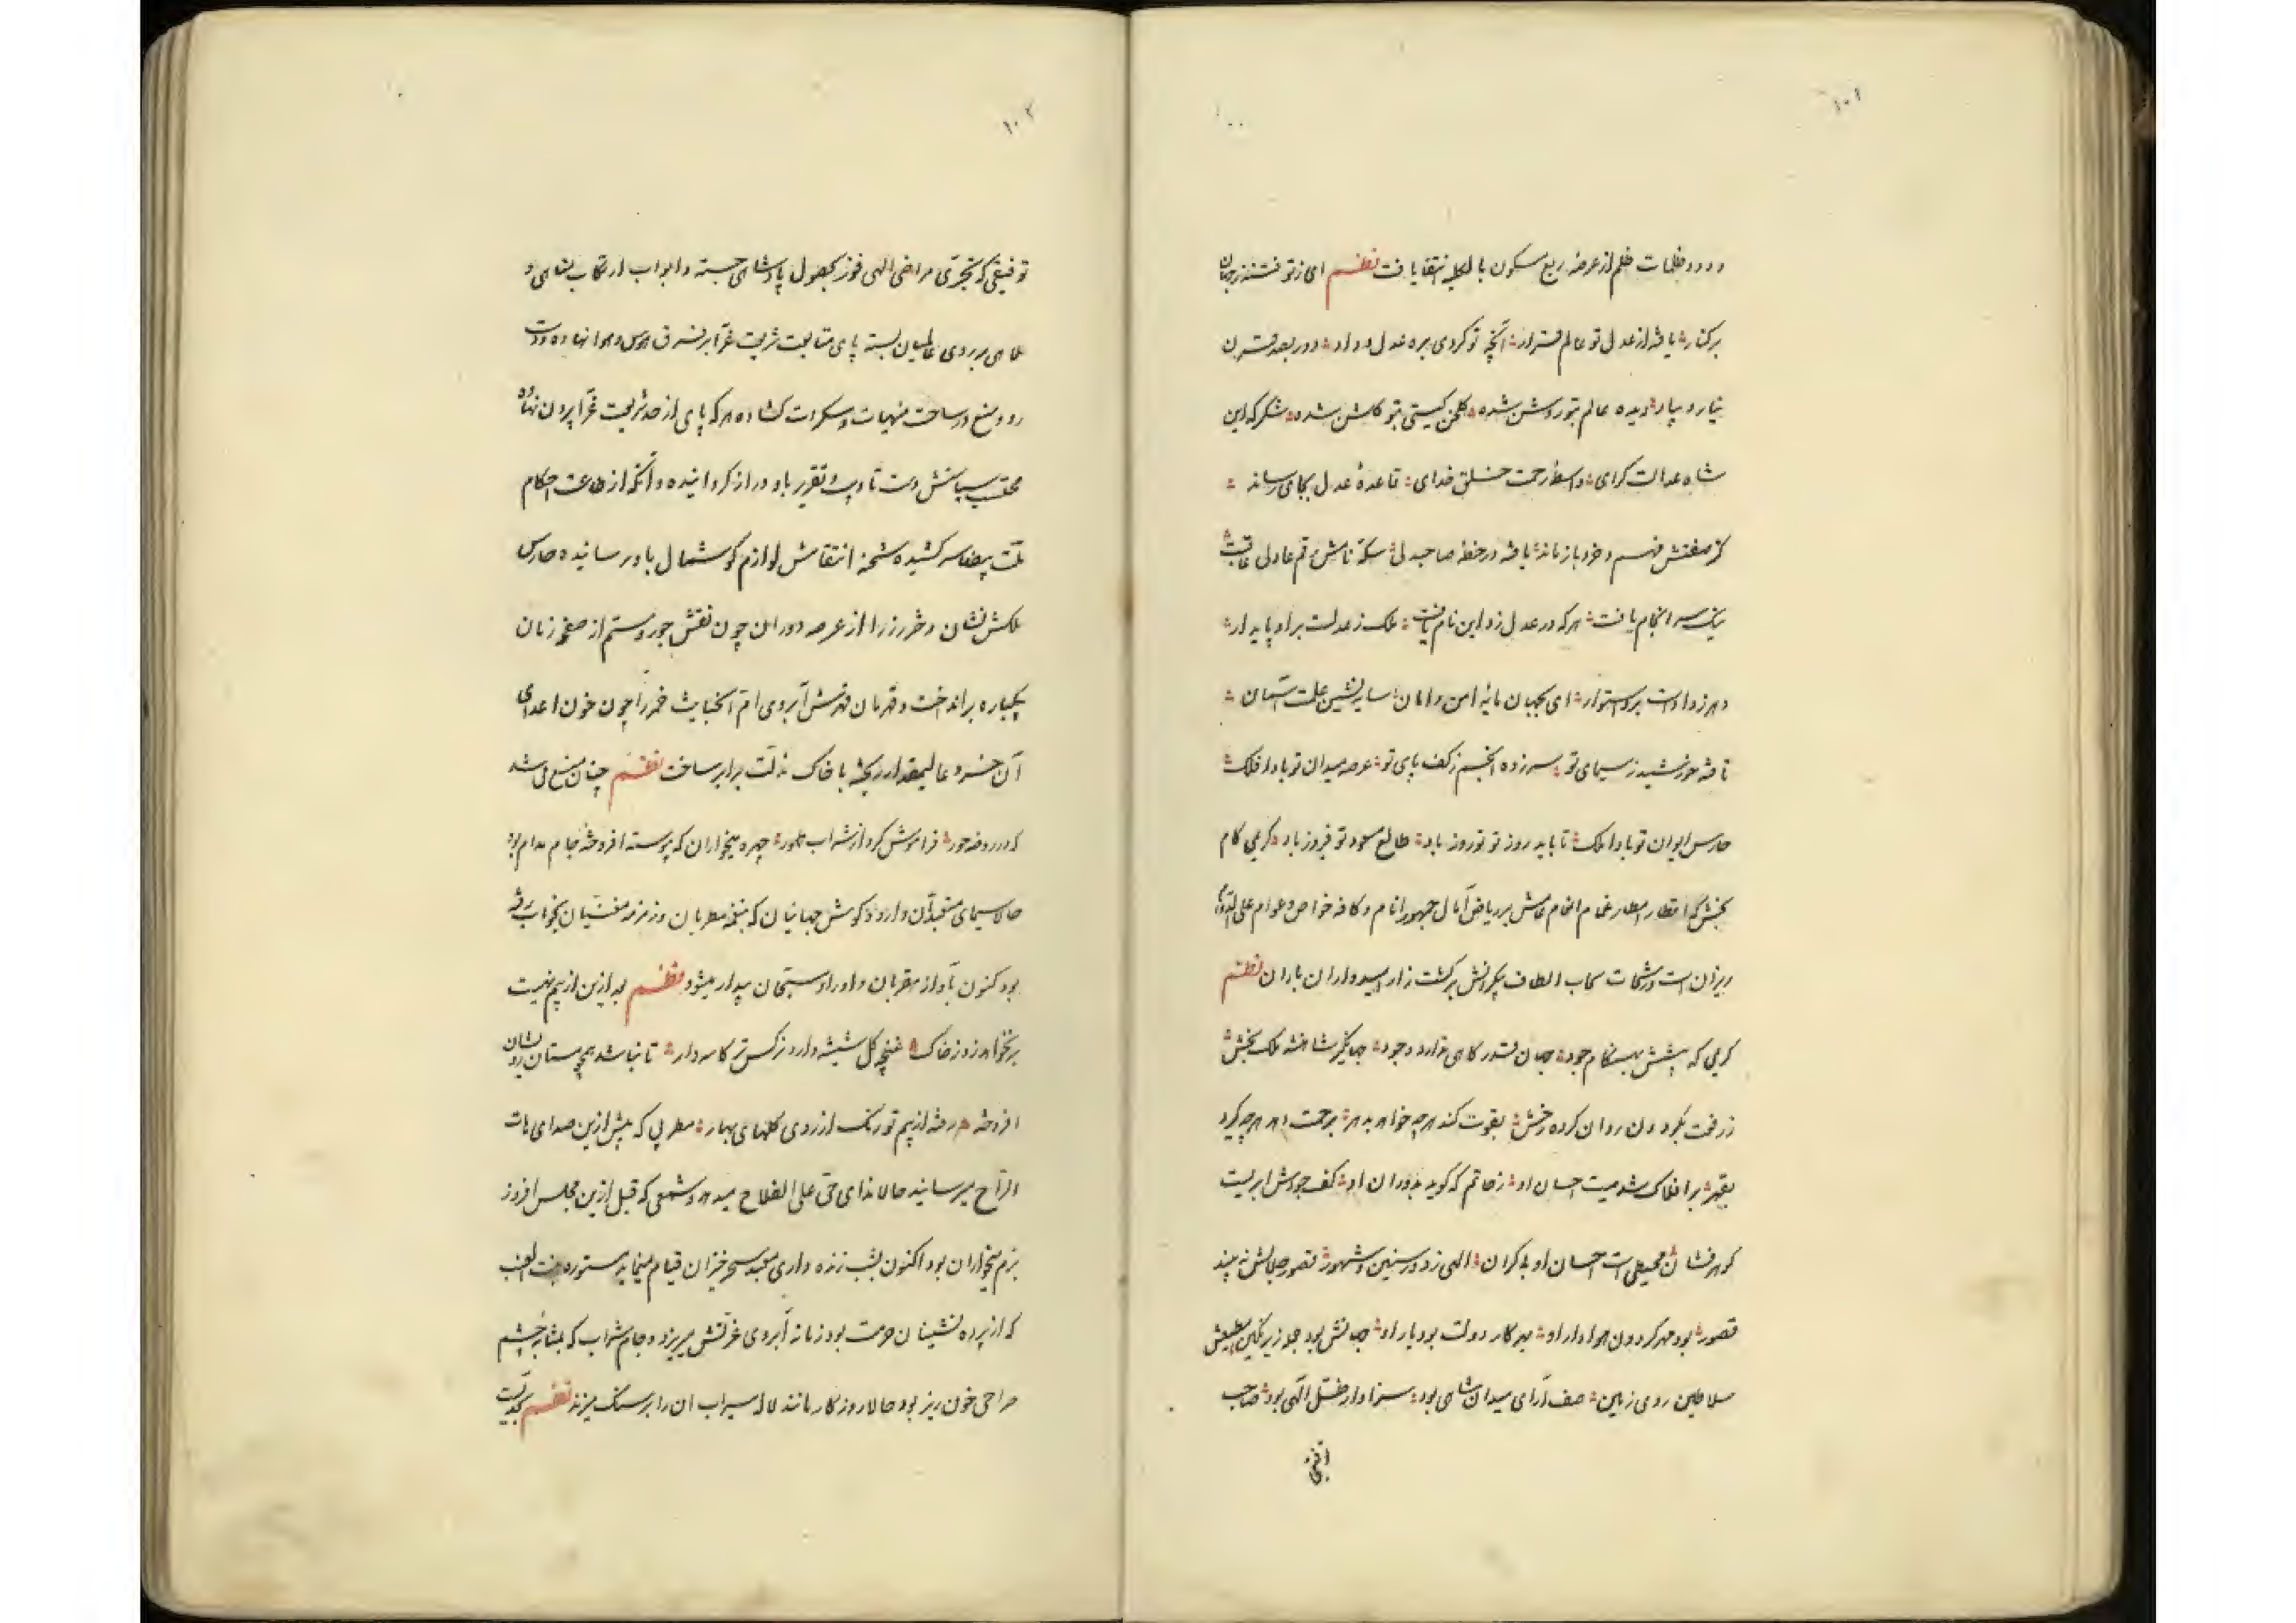 ۱۰۱
و دود ظلمات ظلم از عرصه ربع مسکون بالکلیه انتفا یافت نظم ای ز تو فتنه ز جهان
بر کنار یافته از عدل تو عالم قرار آنچه تو کردی بره عدل و داد دور بصد قرن
نیارد بیاد دیده عالم بتو روشن شده گلخن گیتی بتو گلشن شده شکر که این
شاه عدالت گرای واسطه رحمت خلق خدای قاعدهٔ عدل بجای رساند
کز صفتش فهم و خرد بازماند یافته در خطه صاحبدلی سکهٔ نامش رقم عادلی عاقبت
نیک سرانجام یافت هر که در عدل زد این نام یافت ملک ز عدلت بر او پایدار
ای بجهان مایهٔ امن و امان سایه نشین علمت آسمان
تافته خورشید ز سیمای تو سر زده انجم ز کف پای تو عرصه میدان تو بادا فلک
حارس ایوان تو بادا ملک تا باید روز تو نوروز باد طالع مسعود تو فیروز باد کریمی کام
بخش که اقطار امطار غمام انعام عامش بر ریاض آمال جمهور انام و کافه خواص و عوام علی الدوام
ریزان است و رشحات سحاب الطاف بیکرانش بر کشت زار امیدواران باران نظم
کریمی که پیشش بهنگام جود جهان قدر کاهی ندارد وجود جهانگیر شاهنشه ملک بخش
ز رفعت بگردون روان کرده رخش بقوت کند هر چه خواهد بدهر برحمت دهد هر چه گیرد
بقهر بر افلاک شد صیت احسان او ز حاتم که گوید بدوران او کف جودش ابریست
گوهرفشان محیطی است احسان او بیکران الهی ز دور سنین و شهور قصور جلالش نه بیند
قصور بود مهر گردون هوادار او بهر کار دولت بود یار او جهانش بود جمله زیر نگین مطیعش
سلاطین روی زمین صف آرای میدان شاهی بود سزاوار ظل الهی بود صاحب
۱۰۲
توفیقی که بتحرّی مراضی الهی فوز بحصول پادشاهی جسته و ابواب ارتکاب مناهی و
ملاهی بر روی عالمیان بسته پای متابعت شریعت غرّا بر فرق هوس و هوا نهاده و دست
رد و منع در ساحت منهیات و مسکرات گشاده هر که پای از حد شریعت غرّا بیرون نهاده
محتسب سیاستش دست تادیب و تعزیر باو دراز گردانیده و آنکه از طاعت احکام
ملّت بیضا سر کشیده شحنه انتقامش لوازم گوشمال باو رسانیده حارس
ملکش نشان دختر رز را از عرصه دوران چون نقش جور و ستم از صفحه زمان
بیکباره برانداخت و قهرمان قهرش آبروی ام الخبایث خمر را چون خون اعدای
آن خسرو عالیمقدار ریخته با خاک مذلّت برابر ساخت نظم چنان منع می شد
که در روضه حور فراموش کرد از شراب طهور چهره میخواران که پیوسته افروخته جام مدام بود
حالا سیمای متعبدان دارد و گوش جهانیان که بنغمه مطربان و زمزمه مغنیان بخواب رفته
بود کنون بآواز مقریان و اوراد مسبّحان بیدار میشود نظم بعد ازین از بیم نهیت
برنخواهد زد ز خاک غنچه گل شیشه دار و نرگس تر کاسه دار تا نباشد همچو مستان نشان
افروخته رفته از بیم تو رنگ از روی گلهای بهار مطربی که پیش ازین صدای هات
الراح میرسانید حالا ندای حی علی الفلاح میدهد و شمعی که قبل ازین مجلس افروز
بزم میخواران بود اکنون بشب زنده داری معبد سحرخیزان قیام مینماید مستوره بنت العنب
که از پرده نشینان حرمت بود زمانه آبروی عزتش میریزد و جام شراب که بمثابه چشم
صراحی خون ریز بود حالا روزگار مانند لاله سیراب ان را بر سنگ میزند نظم